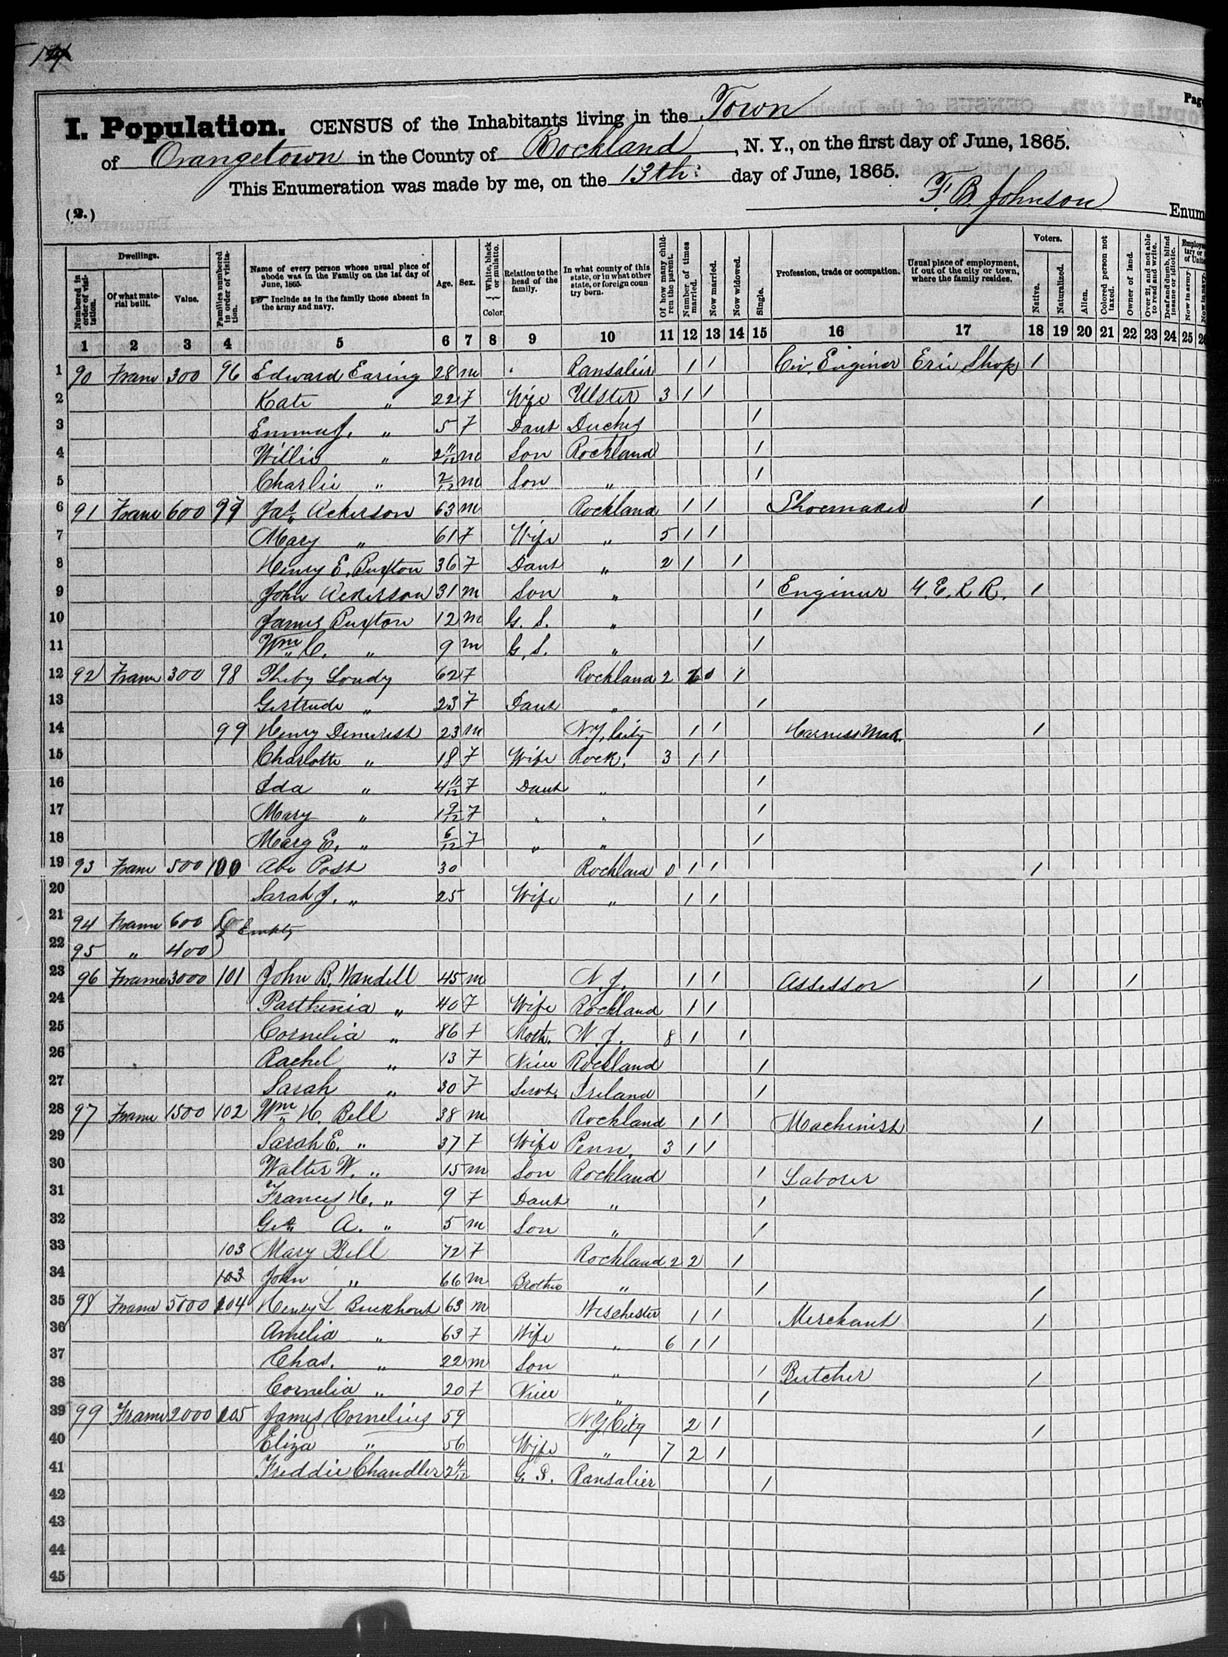 I. Population. CENSUS of the Inhabitants living in the Town
of Orangetown in the County of Rockland, N. Y., on the first day of June, 1865.
This Enumeration was made by me, on the 13th: day of June, 1865.
(2.) F. B. Johnson Enum
Dwellings. Voters.
Numbered in order of visitation. Of what material built. Value. Families numbered in order of visitation. Name of every person whose usual place of abode was in the Family on the 1st day of June, 1865. Include as in the family those absent in the army and navy. Age. Sex. White, black or mulatto. Color Relation to the head of the family. In what county of this state, or in what other state, or foreign country born. Of how many children the parent. Number of times married. Now married. Now widowed. Single. Profession, trade or occupation. Usual place of employment, if out of the city or town, where the family resides. Native. Naturalized. Alien. Colored person not taxed. Owner of land. Over 21, and not able to read and write. Deaf and dumb, blind insane or idiotic. Now in army
1 2 3 4 5 6 7 8 9 10 11 12 13 14 15 16 17 18 19 20 21 22 23 24 25
1 90 Frame 300 96 Edward Earing 28 m Ransalier 1 1 Civ. Enginer Erie Shop 1
2 Kate " 22 F Wife Ulster 3 1 1
3 Emma J. " 5 F Daut Duchess 1
4 Willie " 2 11/12 m Son Rockland 1
5 Charlie " 2/12 m Son " 1
6 91 Frame 600 97 Jas. Ackerson 63 m Rockland 1 1 Shoemaker 1
7 Mary " 61 F Wife " 5 1 1
8 Henry E. Buxton 36 F Daut " 2 1 1
9 John Ackerson 31 m Son " 1 Enginer 1
10 James Buxton 12 m G. S. " 1
11 Wm C. " 9 m G. S. " 1
12 92 Frame 300 98 Pheby Loudy 62 F Rockland 2 1
13 Gertrude " 23 F Daut " 1
14 99 Henry Demerest 23 m N.Y. City 1 1 Harness Mak. 1
15 Charlotte " 18 F Wife Rock. 3 1 1
16 Ida " 4 11/12 F Daut " 1
17 Mary " 1 9/12 F " " 1
18 Mary E. " 6/12 F " " 1
19 93 Frame 500 100 Abe Post 30 Rockland 0 1 1 1
20 Sarah J. " 25 Wife " 1 1
21 94 Frame 600 } Empty
22 95 " 400 }
23 96 Frame 3000 101 John B. Wandell 45 m N. J. 1 1 Assessor 1 1
24 Parthenia " 40 F Wife Rockland 1 1
25 Cornelia " 86 F Moth. N. J. 8 1 1
26 Rachel " 13 F Niece Rockland 1
27 Sarah " 30 F Servt. Ireland 1
28 97 Frame 1500 102 Wm H. Bell 38 m Rockland 1 1 Machinist 1
29 Sarah E. " 37 F Wife Penn. 3 1 1
30 Walter W. " 15 m Son Rockland 1 Laborer
31 Frances H. " 9 F Daut " 1
32 Geo. A. " 5 m Son " 1
33 103 Mary Bell 72 F Rockland 2 2 1
34 103 John " 66 m Brother " 1 1
35 98 Frame 5000 104 Henry L Buckhout 63 m Westchester 1 1 Merchant 1
36 Amelia " 63 F Wife " 6 1 1
37 Chas. " 22 m Son " 1 Butcher 1
38 Cornelia " 20 F Niece " 1
39 99 Frame 2000 105 James Cornelius 59 N.Y. City 2 1 1
40 Eliza " 56 Wife " 7 2 1
41 Freddie Chandler G. S. Ransalier 1
42
43
44
45